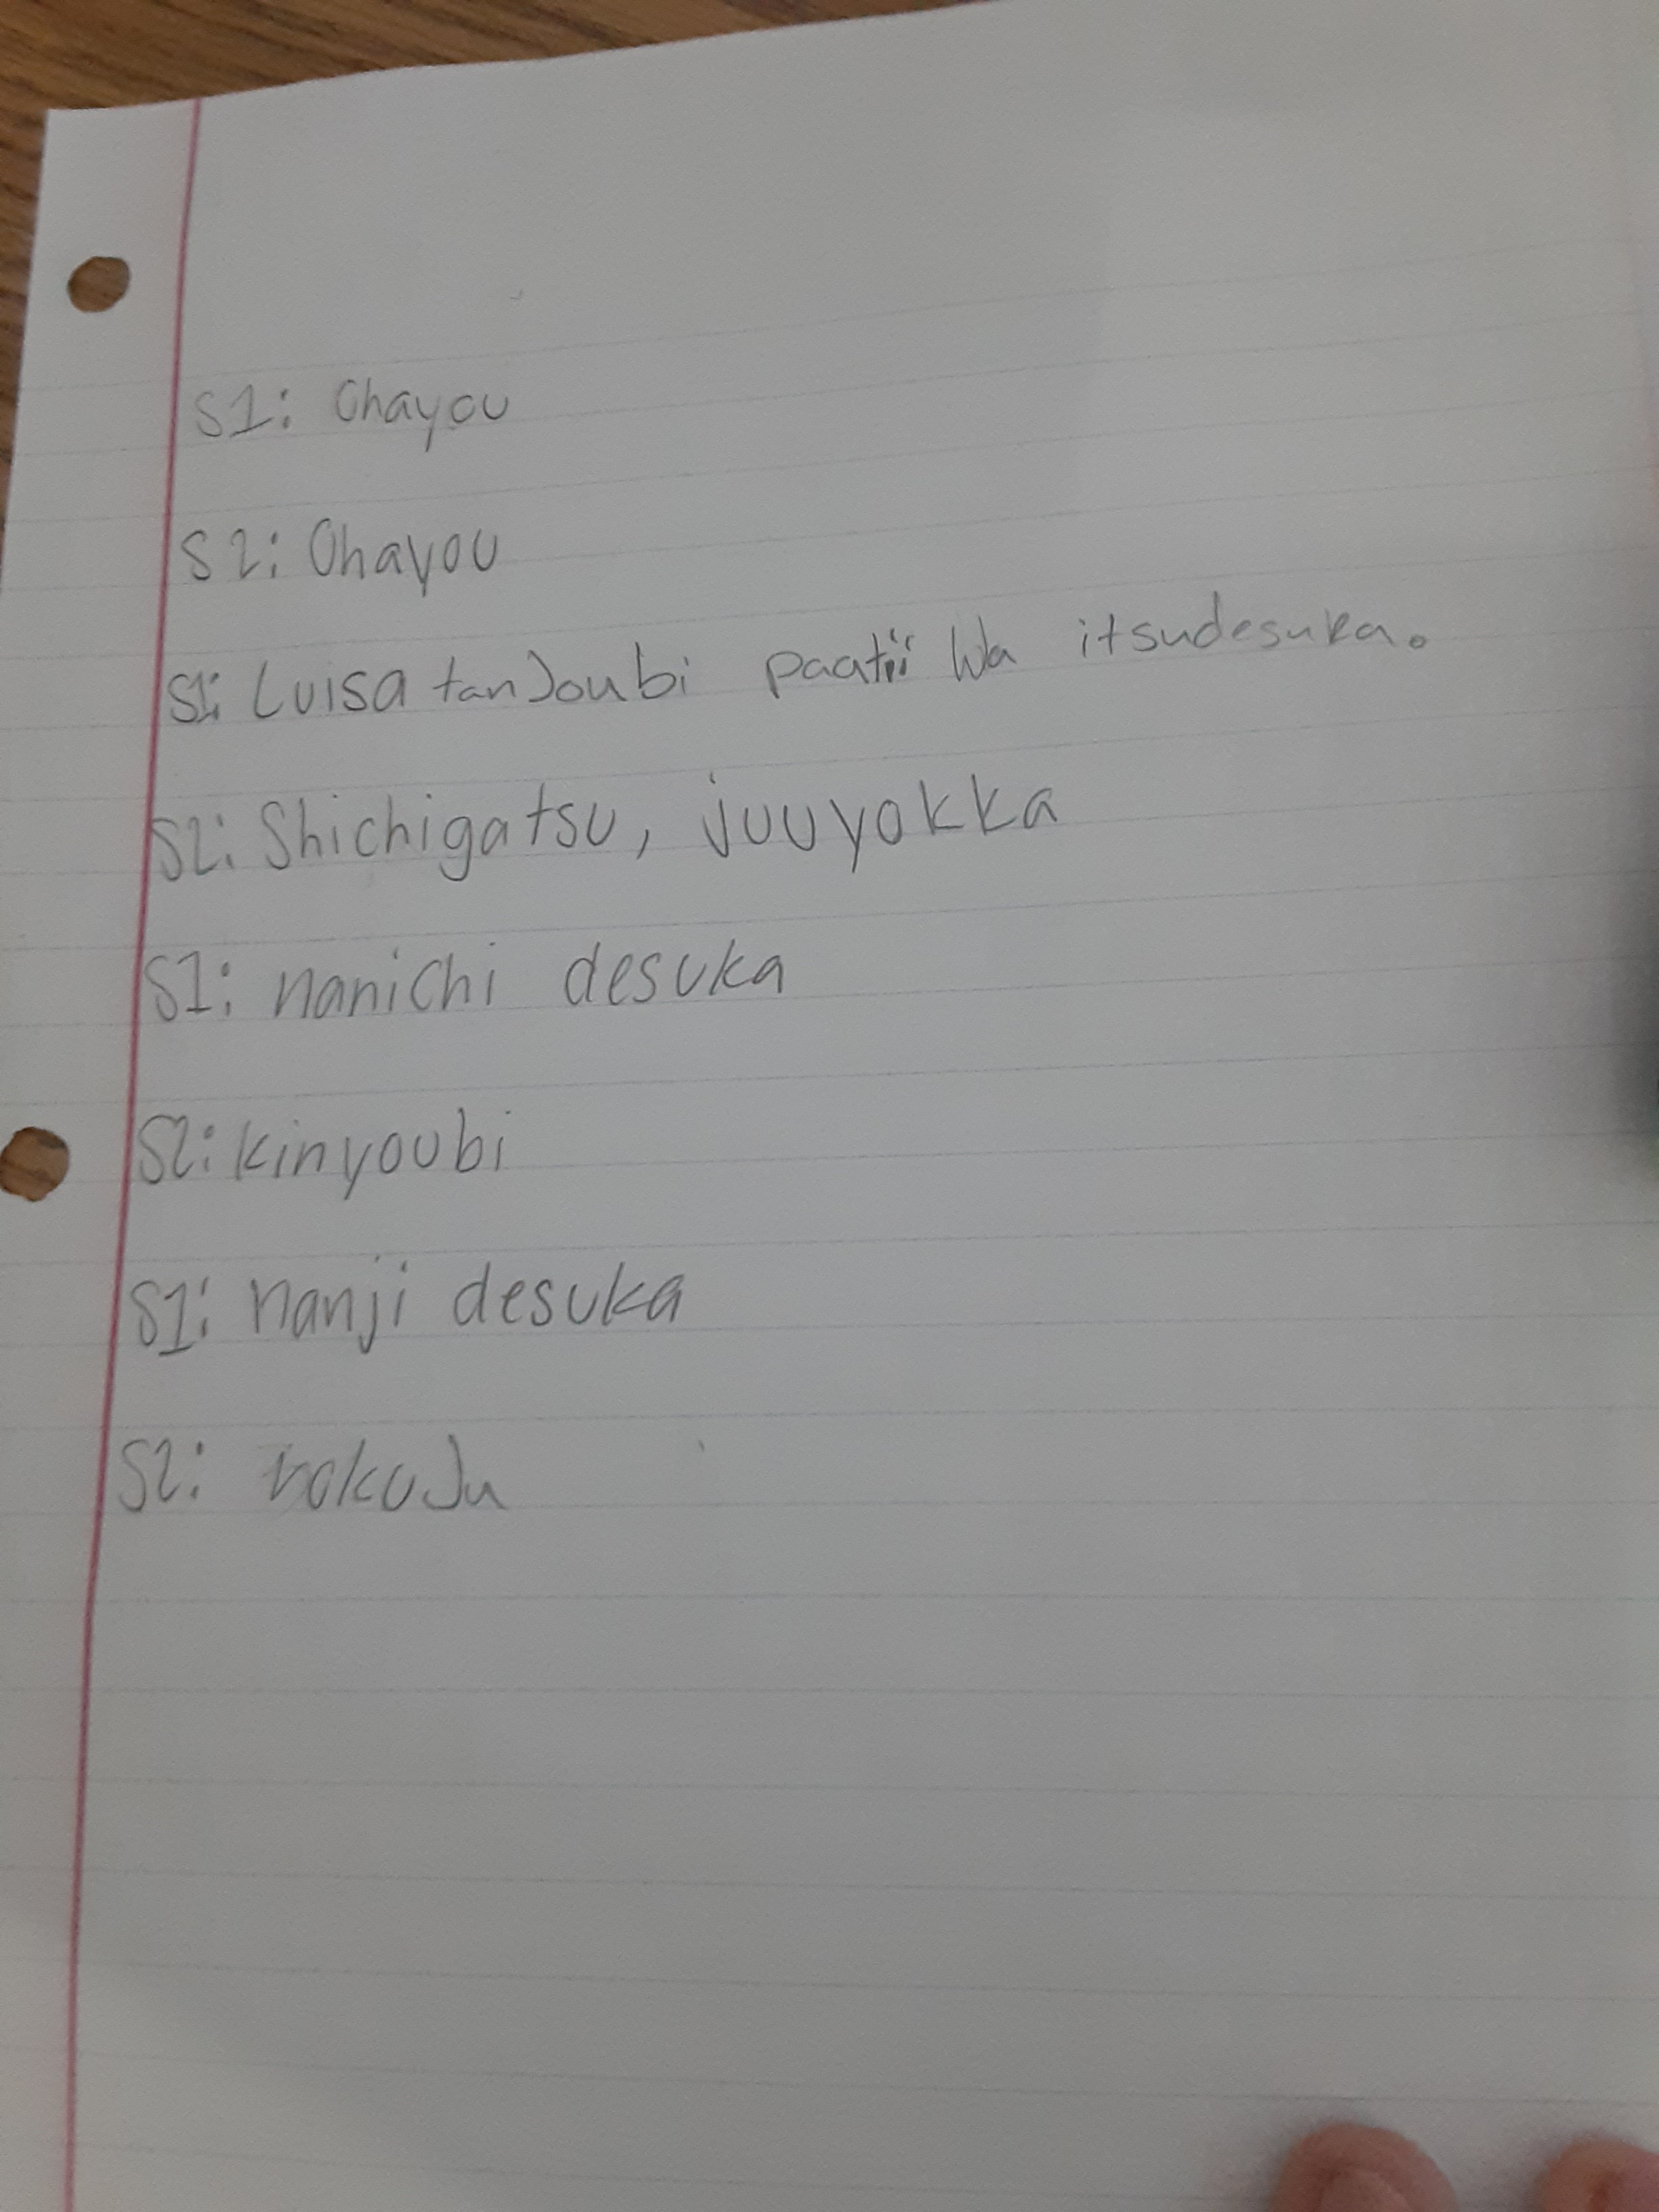 S1: Ohayou
S2: Ohayou
S1: Luisa tanJoubi paatii Wa itsudesuka.
S2: Shichigatsu, juuyokka
S1: nanichi desuka
S2: kinyoubi
S1: nanji desuka
S2: rokuJu